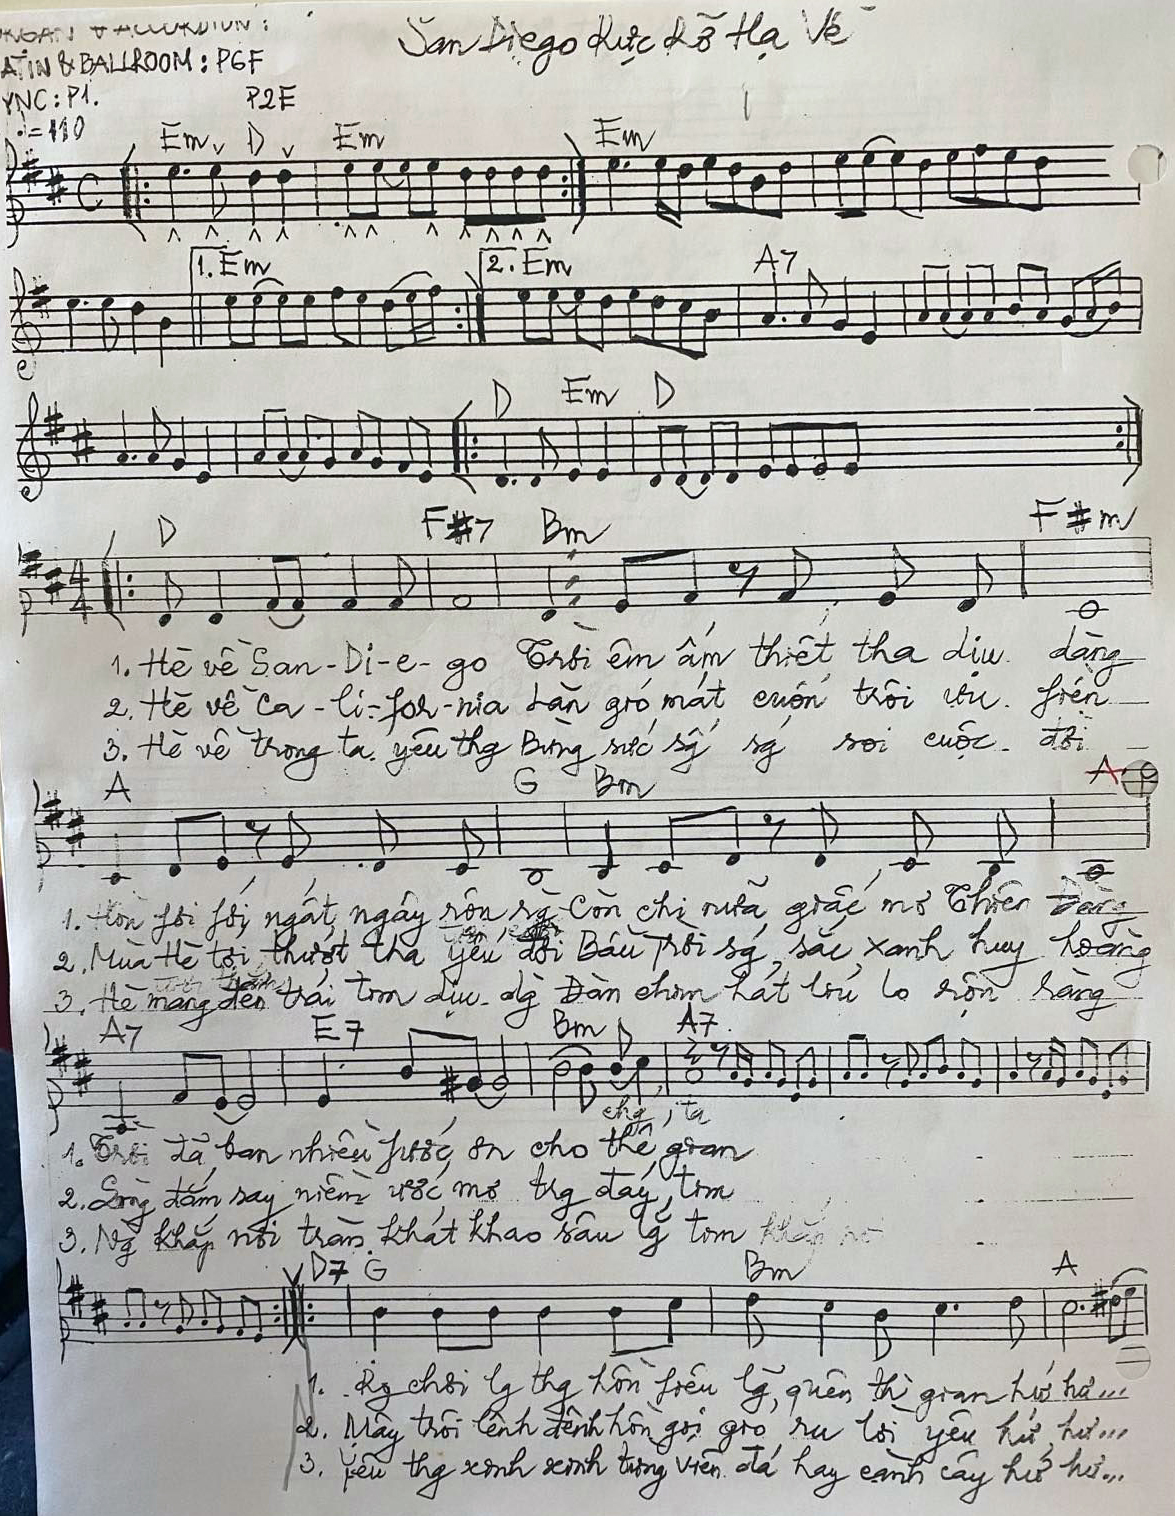 ORGAN & ACCORDION:
San Diego Rực Rỡ Hạ Về
LATIN & BALLROOM: P6F
SYNC: P1. P2E
♩=110
Em D Em Em
1. Em 2. Em A7
D Em D
D F#7 Bm F#m
4/4
1. Hè về San-Di-e-go Trời êm ấm thiết tha dịu dàng
2. Hè về Ca-li-for-nia Làn gió mát cuộn trôi ưu fiền
3. Hè về trong ta yêu thg Bừng sức sg sg soi cuộc đời
A G Bm A
1. Hồn fơi fới, ngất ngây rộn rg Còn chi nữa giấc mơ Thiên Đàng
2. Mùa Hè tới thướt tha yêu đời Bầu trời sg sắc xanh huy hoàng
3. Hè mang đến trái tim dịu dg Đàn chim hát líu lo rộn ràng
A7 E7 Bm D A7
chg ta
1. Trời đã ban nhiều fước ơn cho thế gian
2. Lòng đắm say niềm ước mơ trg đáy tim
3. Ng khắp nơi tràn khát khao sâu lg tim
D7 G Bm A
1. Rg chơi lg thg hồn fiêu lg, quên thì gian hứ hư...
2. Mây trôi lênh đênh hồn gọi gió ru lời yêu hứ hư...
3. yêu thg xinh xinh từng viên đá hay cành cây hứ hư...